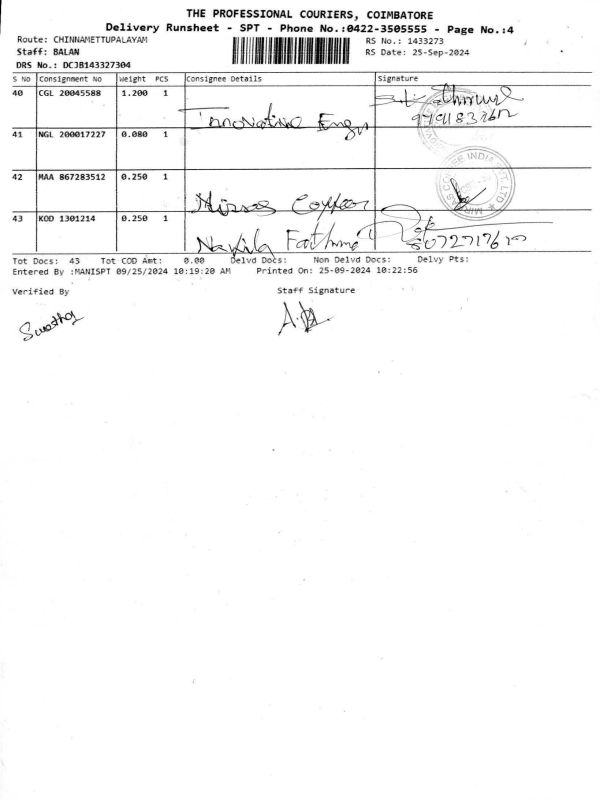 THE PROFESSIONAL COURIERS, COIMBATORE
Delivery Runsheet - SPT - Phone No.:0422-3505555 - Page No.:4
Route: CHINNAMETTUPALAYAM
RS No.: 1433273
Staff: BALAN
RS Date: 25-Sep-2024
DRS No.: DCJB143327304
S No Consignment No Weight PCS Consignee Details Signature
40 CGL 20045588 1.200 1
Innovative Engg
41 NGL 200017227 0.080 1
42 MAA 867283512 0.250 1
43 KOD 1301214 0.250 1
Tot Docs: 43 Tot COD Amt: 0.00 Delvd Docs: Non Delvd Docs: Delvy Pts:
Entered By :MANISPT 09/25/2024 10:19:20 AM Printed On: 25-09-2024 10:22:56
Verified By Staff Signature